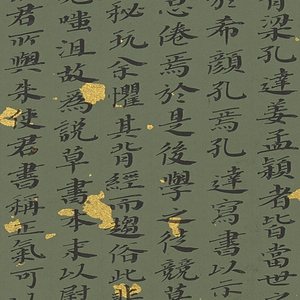 有梁孔達姜孟穎者皆當世之
於希顏孔焉孔達寫書以示
怠倦焉於是後學之徒競
秘玩余懼其背經而趨俗此非
見嗤沮故為說草書本末以慰
君所與朱使君書稱正氣可以